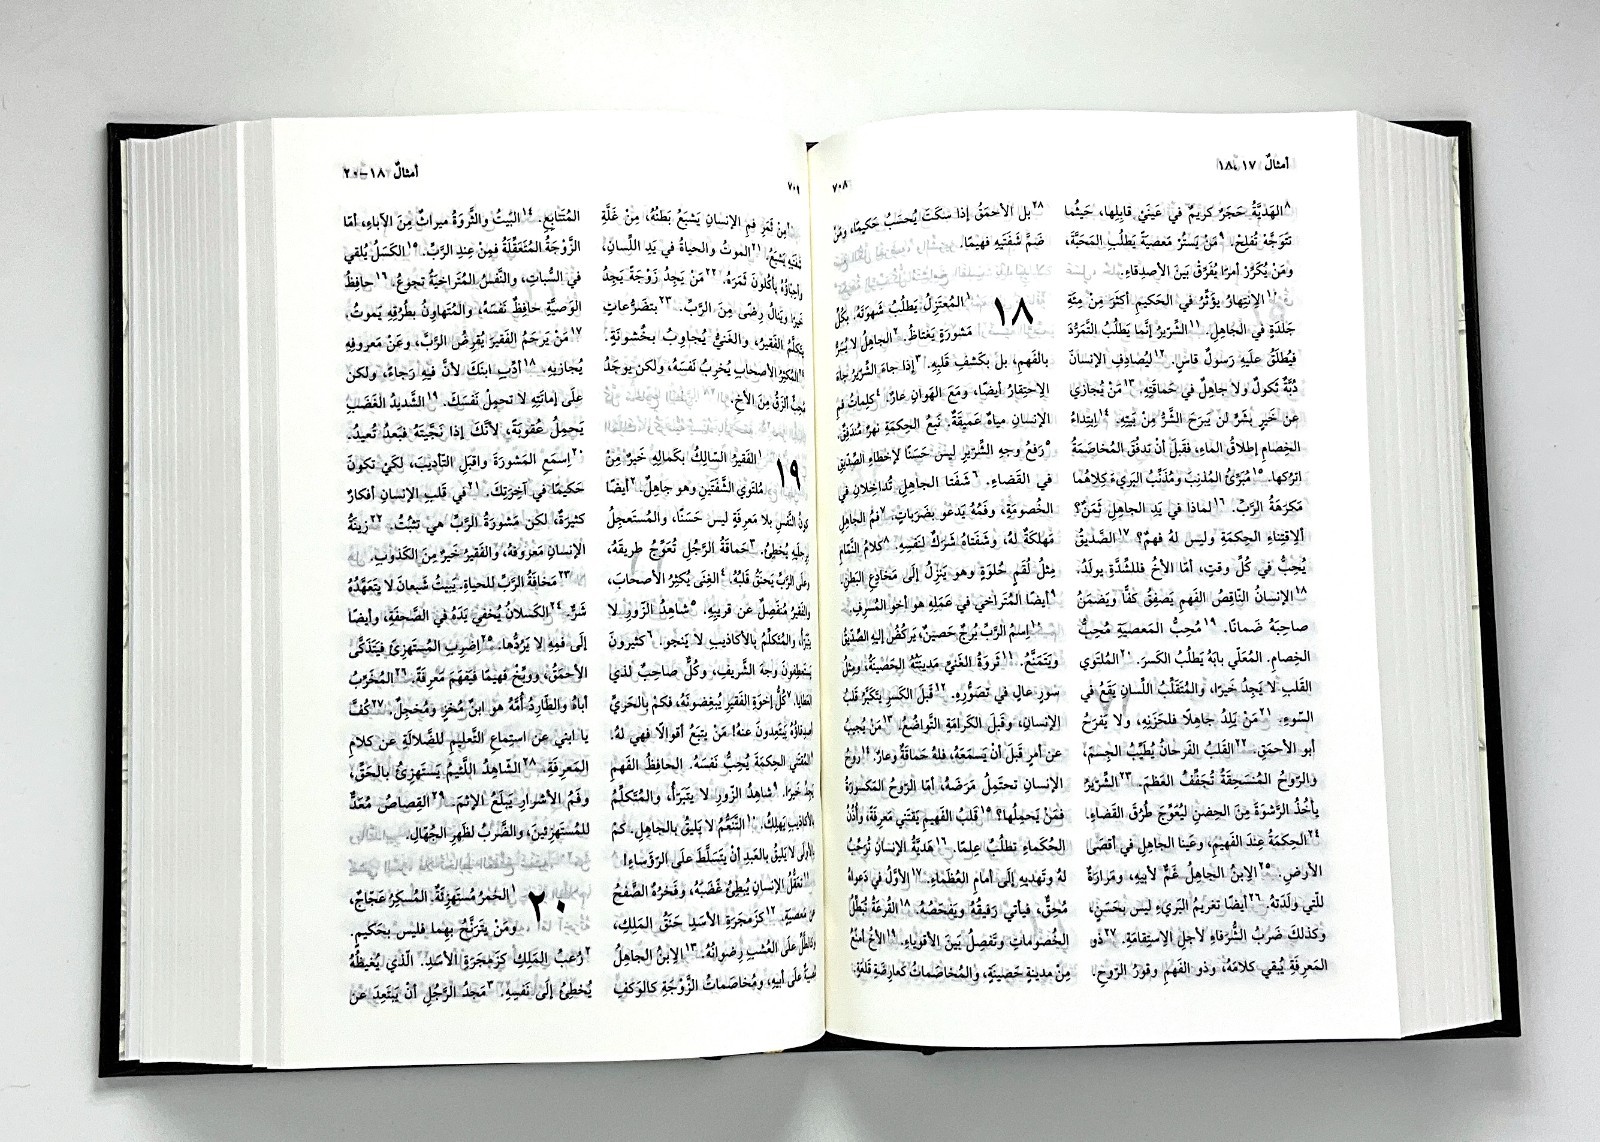 أمثالٌ ١٧، ١٨
٧٠٨
⁸الهَديَّةُ حَجَرٌ كريمٌ في عَينَيْ قابِلِها، حَيثُما
تتَوَجَّهْ تُفلِحْ. ⁹مَنْ يَستُرْ مَعصيَةً يَطلُبِ المَحَبَّةَ،
ومَنْ يُكَرِّرْ أمرًا يُفَرِّقْ بَينَ الأصدِقاءِ.
¹⁰الِانتِهارُ يؤَثِّرُ في الحَكيمِ أكثَرَ مِنْ مِئَةِ
جَلدَةٍ في الجاهِلِ. ¹¹الشِّرّيرُ إنَّما يَطلُبُ التَّمَرُّدَ
فيُطلَقُ علَيهِ رَسولٌ قاسٍ. ¹²ليُصادِفِ الإنسانَ
دُبَّةٌ ثَكولٌ ولا جاهِلٌ في حَماقَتِهِ. ¹³مَنْ يُجازي
عن خَيرٍ بشَرٍّ لن يَبرَحَ الشَّرُّ مِنْ بَيتِهِ. ¹⁴اِبتِداءُ
الخِصامِ إطلاقُ الماءِ، فقَبلَ أنْ تدفُقَ المُخاصَمَةُ
اترُكها. ¹⁵مُبَرِّئُ المُذنِبَ ومُذَنِّبُ البَريءَ كِلاهُما
مَكرَهَةُ الرَّبِّ. ¹⁶لماذا في يَدِ الجاهِلِ ثَمَنٌ؟
ألِاقتِناءِ الحِكمَةِ وليس لهُ فهمٌ؟ ¹⁷الصَّديقُ
يُحِبُّ في كُلِّ وقتٍ، أمّا الأخُ فللشِّدَّةِ يولَدُ.
¹⁸الإنسانُ النّاقِصُ الفَهمِ يَصفِقُ كفًّا ويَضمَنُ
صاحِبَهُ ضَمانًا. ¹⁹مُحِبُّ المَعصيَةِ مُحِبُّ
الخِصامِ. المُعَلّي بابَهُ يَطلُبُ الكَسرَ. ²⁰المُلتَوي
القَلبِ لا يَجِدُ خَيرًا، والمُتَقَلِّبُ اللِّسانِ يَقَعُ في
السّوءِ. ²¹مَنْ يَلِدُ جاهِلًا فلحَزَنِهِ، ولا يَفرَحُ
أبو الأحمَقِ. ²²القَلبُ الفَرحانُ يُطَيِّبُ الجِسمَ،
والرّوحُ المُنسَحِقَةُ تُجَفِّفُ العَظمَ. ²³الشِّرّيرُ
يأخُذُ الرَّشوَةَ مِنَ الحِضنِ ليُعَوِّجَ طُرُقَ القَضاءِ.
²⁴الحِكمَةُ عِندَ الفَهيمِ، وعَينا الجاهِلِ في أقصَى
الأرضِ. ²⁵الِابنُ الجاهِلُ غَمٌّ لأبيهِ، ومَرارَةٌ
للّتي ولَدَتهُ. ²⁶أيضًا تغريمُ البَريءِ ليس بحَسَنٍ،
وكذلكَ ضَربُ الشُّرَفاءِ لأجلِ الِاستِقامَةِ. ²⁷ذو
المَعرِفَةِ يُبقي كلامَهُ، وذو الفَهمِ وقورُ الرّوحِ.
²⁸بل الأحمَقُ إذا سكَتَ يُحسَبُ حَكيمًا، ومَنْ
ضَمَّ شَفَتَيهِ فهيمًا.
١٨
¹المُعتَزِلُ يَطلُبُ شَهوَتَهُ. بكُلِّ
مَشورَةٍ يَغتاظُ. ²الجاهِلُ لا يُسَرُّ
بالفَهمِ، بل بكَشفِ قَلبِهِ. ³إذا جاءَ الشِّرّيرُ جاءَ
الِاحتِقارُ أيضًا، ومَعَ الهَوانِ عارٌ. ⁴كلِماتُ فمِ
الإنسانِ مياهٌ عَميقَةٌ. نَبعُ الحِكمَةِ نهرٌ مُندَفِقٌ.
⁵رَفعُ وجهِ الشِّرّيرِ ليس حَسَنًا لإخطاءِ الصِّدّيقِ
في القَضاءِ. ⁶شَفَتا الجاهِلِ تُداخِلانِ في
الخُصومَةِ، وفَمُهُ يَدعو بضَرَباتٍ. ⁷فمُ الجاهِلِ
مَهلكَةٌ لهُ، وشَفَتاهُ شَرَكٌ لنَفسِهِ. ⁸كلامُ النَّمّامِ
مِثلُ لُقَمٍ حُلوَةٍ وهو يَنزِلُ إلَى مَخادِعِ البَطنِ.
⁹أيضًا المُتَراخي في عَمَلِهِ هو أخو المُسرِفِ.
¹⁰اِسمُ الرَّبِّ بُرجٌ حَصينٌ، يَركُضُ إليهِ الصِّدّيقُ
ويَتَمَنَّعُ. ¹¹ثَروَةُ الغَنيِّ مَدينَتُهُ الحَصينَةُ، ومِثلُ
سورٍ عالٍ في تصَوُّرِهِ. ¹²قَبلَ الكَسرِ يتَكَبَّرُ قَلبُ
الإنسانِ، وقَبلَ الكَرامَةِ التَّواضُعُ. ¹³مَنْ يُجيبُ
عن أمرٍ قَبلَ أنْ يَسمَعَهُ، فلهُ حَماقَةٌ وعارٌ. ¹⁴روحُ
الإنسانِ تحتَمِلُ مَرَضَهُ، أمّا الرّوحُ المَكسورَةُ
فمَنْ يَحمِلُها؟ ¹⁵قَلبُ الفَهيمِ يَقتَني مَعرِفَةً، وأُذُنُ
الحُكَماءِ تطلُبُ عِلمًا. ¹⁶هَديَّةُ الإنسانِ تُرَحِّبُ
لهُ وتَهديهِ إلَى أمامِ العُظَماءِ. ¹⁷الأوَّلُ في دَعواهُ
مُحِقٌّ، فيأتي رَفيقُهُ ويَفحَصُهُ. ¹⁸القُرعَةُ تُبَطِّلُ
الخُصوماتِ وتَفصِلُ بَينَ الأقوياءِ. ¹⁹الأخُ أمنَعُ
مِنْ مدينةٍ حَصينَةٍ، والمُخاصَماتُ كعارِضَةِ قَلعَةٍ.
أمثالٌ ١٨–٢٠
٧٠٩
²⁰مِنْ ثَمَرِ فمِ الإنسانِ يَشبَعُ بَطنُهُ، مِنْ غَلَّةِ
شَفَتَيهِ يَشبَعُ. ²¹الموتُ والحياةُ في يَدِ اللِّسانِ،
وأحِبّاؤُهُ يأكُلونَ ثَمَرَهُ. ²²مَنْ يَجِدُ زَوْجَةً يَجِدُ
خَيرًا ويَنالُ رِضًى مِنَ الرَّبِّ. ²³بتَضَرُّعاتٍ
يتَكلَّمُ الفَقيرُ، والغَنيُّ يُجاوِبُ بخُشونَةٍ.
²⁴المُكثِرُ الأصحابِ يُخرِبُ نَفسَهُ، ولكن يوجَدُ
مُحِبٌّ ألزَقُ مِنَ الأخِ.
١٩
¹الفَقيرُ السّالِكُ بكَمالِهِ خَيرٌ مِنْ
مُلتَوي الشَّفَتَينِ وهو جاهِلٌ. ²أيضًا
كونُ النَّفسِ بلا مَعرِفَةٍ ليس حَسَنًا، والمُستَعجِلُ
برِجلَيهِ يُخطِئُ. ³حَماقَةُ الرَّجُلِ تُعَوِّجُ طريقَهُ،
وعلَى الرَّبِّ يَحنَقُ قَلبُهُ. ⁴الغِنَى يُكثِرُ الأصحابَ،
والفَقيرُ مُنفَصِلٌ عن قريبِهِ. ⁵شاهِدُ الزّورِ لا
يتَبَرّأُ، والمُتَكلِّمُ بالأكاذيبِ لا يَنجو. ⁶كثيرونَ
يَستَعطِفونَ وجهَ الشَّريفِ، وكُلٌّ صاحِبٌ لذي
العَطايا. ⁷كُلُّ إخوَةِ الفَقيرِ يُبغِضونَهُ، فكمْ بالحَريِّ
أصدِقاؤُهُ يَبتَعِدونَ عنهُ! مَنْ يتبَعُ أقوالًا فهي لهُ.
⁸المُقتَني الحِكمَةَ يُحِبُّ نَفسَهُ. الحافِظُ الفَهمِ
يَجِدُ خَيرًا. ⁹شاهِدُ الزّورِ لا يتَبَرّأُ، والمُتَكلِّمُ
بالأكاذيبِ يَهلِكُ. ¹⁰التَّنَعُّمُ لا يَليقُ بالجاهِلِ. كمْ
بالأولَى لا يَليقُ بالعَبدِ أنْ يتَسَلَّطَ علَى الرّؤَساءِ!
¹¹تعَقُّلُ الإنسانِ يُبطِئُ غَضَبَهُ، وفَخرُهُ الصَّفحُ
عن مَعصيَةٍ. ¹²كزَمجَرَةِ الأسَدِ حَنَقُ المَلِكِ،
وكالطَّلِّ علَى العُشبِ رِضوانُهُ. ¹³الِابنُ الجاهِلُ
مُصيبَةٌ علَى أبيهِ، ومُخاصَماتُ الزَّوْجَةِ كالوَكفِ
المُتَتابِعِ. ¹⁴البَيتُ والثَّروَةُ ميراثٌ مِنَ الآباءِ، أمّا
الزَّوْجَةُ المُتَعَقِّلَةُ فمِنْ عِندِ الرَّبِّ. ¹⁵الكَسَلُ يُلقي
في السُّباتِ، والنَّفسُ المُتَراخيَةُ تجوعُ. ¹⁶حافِظُ
الوَصيَّةِ حافِظٌ نَفسَهُ، والمُتَهاوِنُ بطُرُقِهِ يَموتُ.
¹⁷مَنْ يَرحَمُ الفَقيرَ يُقرِضُ الرَّبَّ، وعَنْ مَعروفِهِ
يُجازيهِ. ¹⁸أدِّبِ ابنَكَ لأنَّ فيهِ رَجاءً، ولكن
علَى إماتَتِهِ لا تحمِلْ نَفسَكَ. ¹⁹الشَّديدُ الغَضَبِ
يَحمِلُ عُقوبَةً، لأنَّكَ إذا نَجَّيتَهُ فبَعدُ تُعيدُ.
²⁰اِسمَعِ المَشورَةَ واقبَلِ التّأديبَ، لكَيْ تكونَ
حَكيمًا في آخِرَتِكَ. ²¹في قلبِ الإنسانِ أفكارٌ
كثيرَةٌ، لكن مَشورَةُ الرَّبِّ هي تثبُتُ. ²²زينَةُ
الإنسانِ مَعروفُهُ، والفَقيرُ خَيرٌ مِنَ الكَذوبِ.
²³مَخافَةُ الرَّبِّ للحياةِ. يَبيتُ شَبعانَ لا يَتَعَهَّدُهُ
شَرٌّ. ²⁴الكَسلانُ يُخفي يَدَهُ في الصَّحفَةِ، وأيضًا
إلَى فمِهِ لا يَرُدُّها. ²⁵اِضرِبِ المُستَهزِئَ فيَتَذَكَّى
الأحمَقُ، ووبِّخْ فهيمًا فيَفهَمَ مَعرِفَةً. ²⁶المُخَرِّبُ
أباهُ والطّارِدُ أُمَّهُ هو ابنٌ مُخزٍ ومُخجِلٌ. ²⁷كُفَّ
يا ابني عن استِماعِ التَّعليمِ للضَّلالَةِ عن كلامِ
المَعرِفَةِ. ²⁸الشّاهِدُ اللَّئيمُ يَستَهزِئُ بالحَقِّ،
وفَمُ الأشرارِ يَبلَعُ الإثمَ. ²⁹القِصاصُ مُعَدٌّ
للمُستَهزِئينَ، والضَّربُ لظَهرِ الجُهّالِ.
٢٠
¹الخمرُ مُستَهزِئَةٌ. المُسكِرُ عَجّاجٌ،
ومَنْ يتَرَنَّحُ بهِما فليس بحَكيمٍ.
²رُعبُ المَلِكِ كزَمجَرَةِ الأسَدِ. الّذي يُغيظُهُ
يُخطِئُ إلَى نَفسِهِ. ³مَجدُ الرَّجُلِ أنْ يَبتَعِدَ عن